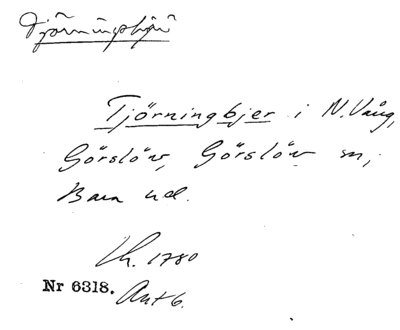 Tjörningbjer
Tjörningbjer i N. Vång,
Görslöv, Görslöv sn,
Bara hd.
Lh. 1780
Nr 6318. Akt 6.